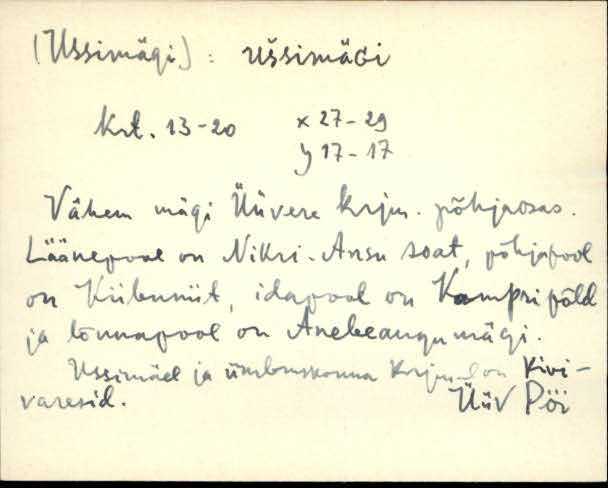 (Ussimägi) : uśsimäGi
Krt. 13-20 x 27-29
y 17-17
Vähem mägi Üüvere krjm. põhjaosas.
Läänepool on Nikri-Ansu soat, põhjapool
on niit, idapool on Kampri põld
ja lõunapool on mägi.
Ussimäel ja ümbruskonna on Kivi-
varesid. Üüv Pöi